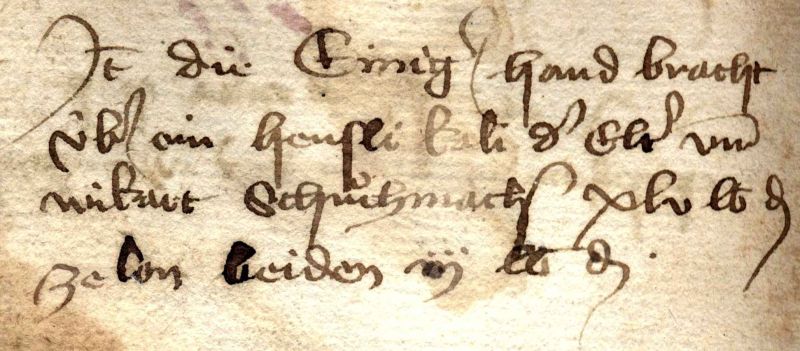 It die Einig hand bracht
vb' ein hensli kali d' Elt' vn
wikart Schuͦchmach' xlv lb d
ze lon beiden iij lb d.